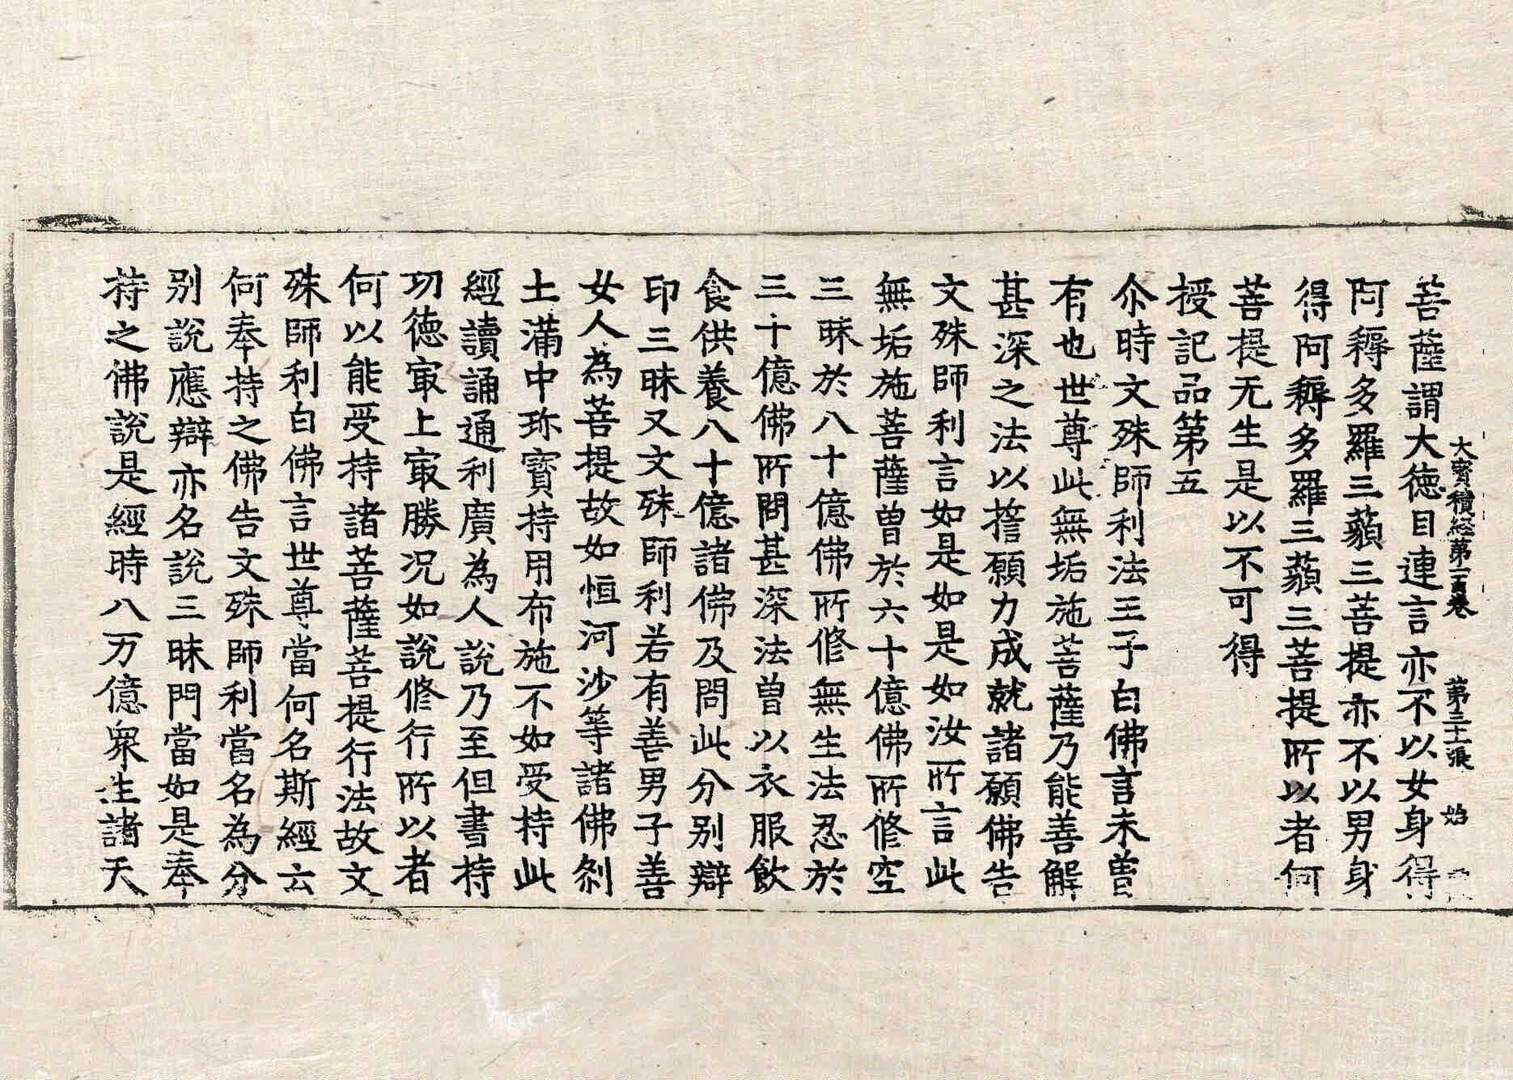 大寳積経第一百卷 第三十張 始
菩薩謂大德目連言亦不以女身得
阿耨多羅三藐三菩提亦不以男身
得阿耨多羅三藐三菩提所以者何
菩提无生是以不可得
授記品第五
尒時文殊師利法王子白佛言未曾
有也世尊此無垢施菩薩乃能善解
甚深之法以誓願力成就諸願佛告
文殊師利言如是如是如汝所言此
無垢施菩薩曾於六十億佛所修空
三昧於八十億佛所修無生法忍於
三十億佛所問甚深法曾以衣服飲
食供養八十億諸佛及問此分别辯
印三昧又文殊師利若有善男子善
女人為菩提故如恒河沙等諸佛剎
土滿中珎寳持用布施不如受持此
經讀誦通利廣為人說乃至但書持
功德㝡上㝡勝况如說修行所以者
何以能受持諸菩薩菩提行法故文
殊師利白佛言世尊當何名斯經云
何奉持之佛告文殊師利當名為分
别說應辯亦名說三昧門當如是奉
持之佛說是經時八万億衆生諸天